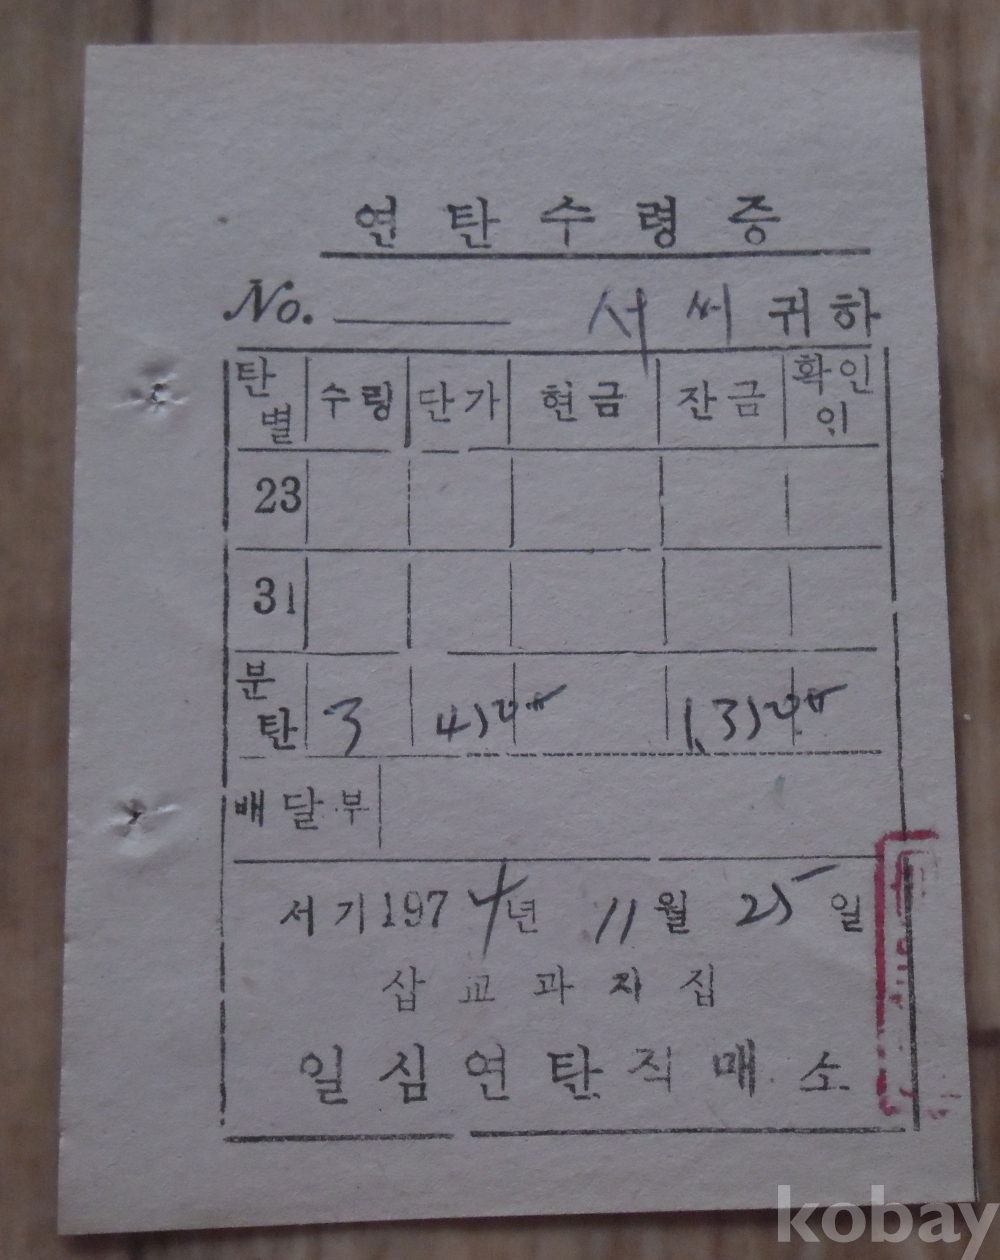 연탄수령증
No. 서씨 귀하
탄별 수량 단가 현금 잔금 확인인
23
31
분탄 3
배달부
서기 1974년 11월 25일
삽교과자집
일심연탄직매소
kobay